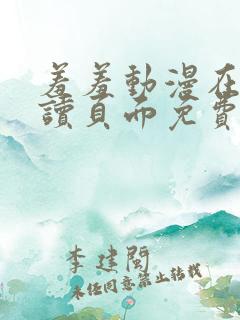 羞羞動漫在
讀頁面免費
李建閩
未经同意禁止转载